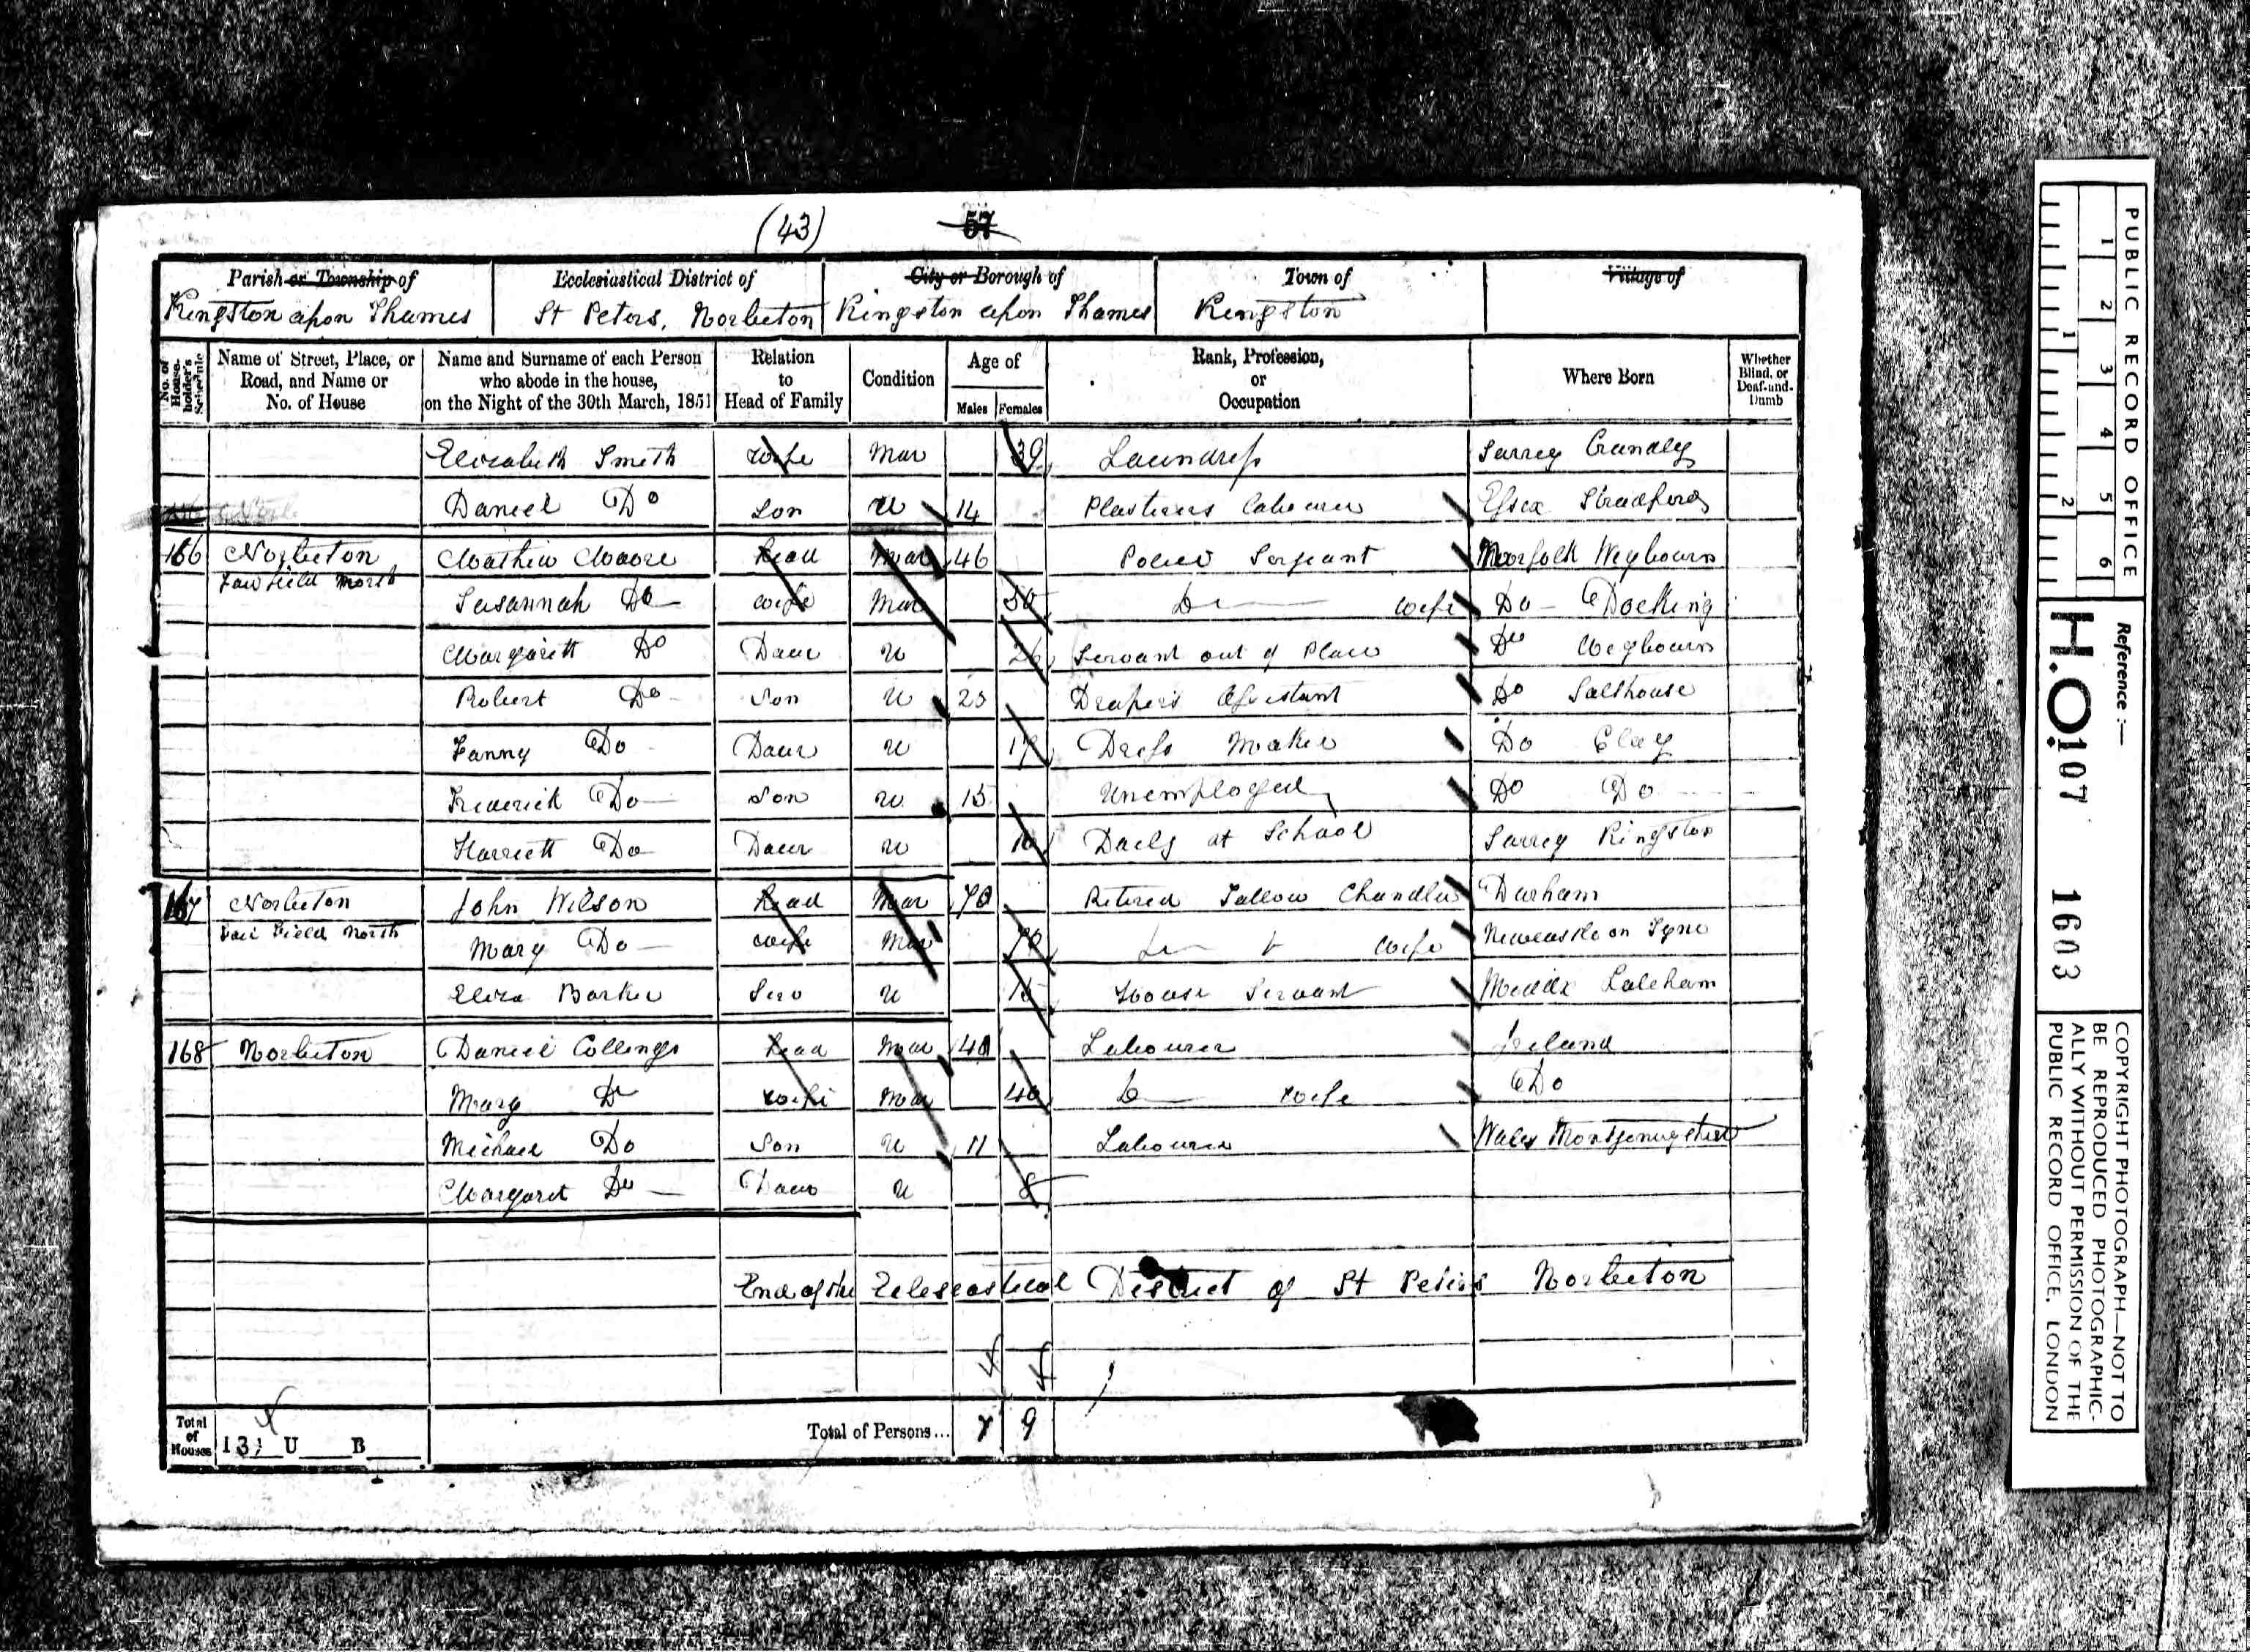 (43) 57
Parish or Township of Ecclesiastical District of City or Borough of Town of Village of
Kingston upon Thames St Peters, Norbiton Kingston upon Thames Kingston
No. of House-holder's Schedule Name of Street, Place, or Road, and Name or No. of House Name and Surname of each Person who abode in the house, on the Night of the 30th March, 1851 Relation to Head of Family Condition Age of Males Females Rank, Profession, or Occupation Where Born Whether Blind, or Deaf-and-Dumb
Elizabeth Smith Wife Mar 39 Laundress Surrey
Daniel Do Son U 14 Plasterers Labourer Essex Stradford
166 Norbiton Fair Field North Mathew Moore Head Mar 46 Police Sergeant Norfolk Weybourn
Susannah Do Wife Mar 50 Do Wife Do Docking
Margarett Do Daur U Servant out of Place Do Weybourn
Robert Do Son U 23 Drapers Assistant Do Salthouse
Fanny Do Daur U Dress Maker Do Clay
Frederick Do Son U 15 Unemployed Do Do
Harriett Do Daur U 10 Daily at School Surrey Kingston
167 Norbiton Fair Field North John Wilson Head Mar 70 Retired Tallow Chandler Durham
Mary Do Wife Mar 70 Wife Newcastle on Tyne
Eliza Barker Serv U 15 House Servant Middx Laleham
168 Norbiton Daniel Collings Head Mar 40 Labourer Ireland
Mary Do Wife Mar 40 Do Wife Do
Michael Do Son U 11 Labourer Wales Montgomeryshire
Margaret Do Daur U 8
End of the Ecleseastical District of St Peters Norbiton
Total of Houses I 3 U B Total of Persons... 7 9
PUBLIC RECORD OFFICE
1 2 3 4 5 6
1 2
Reference :—
H.O. 107 1603
COPYRIGHT PHOTOGRAPH—NOT TO
BE REPRODUCED PHOTOGRAPHIC-
ALLY WITHOUT PERMISSION OF THE
PUBLIC RECORD OFFICE, LONDON